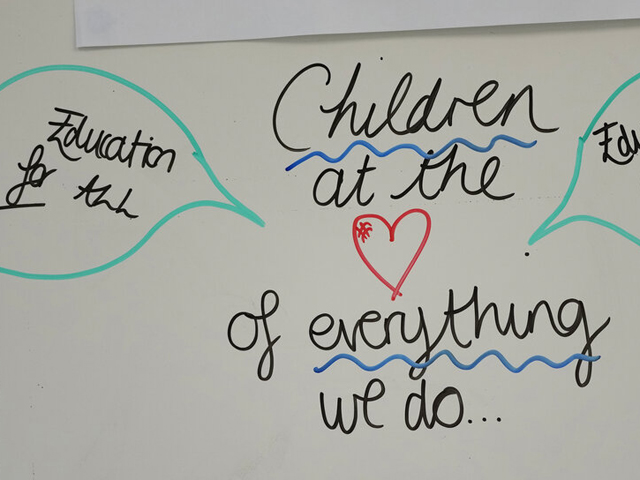 Education
for
Children
at the
of everything
we do...
Edu